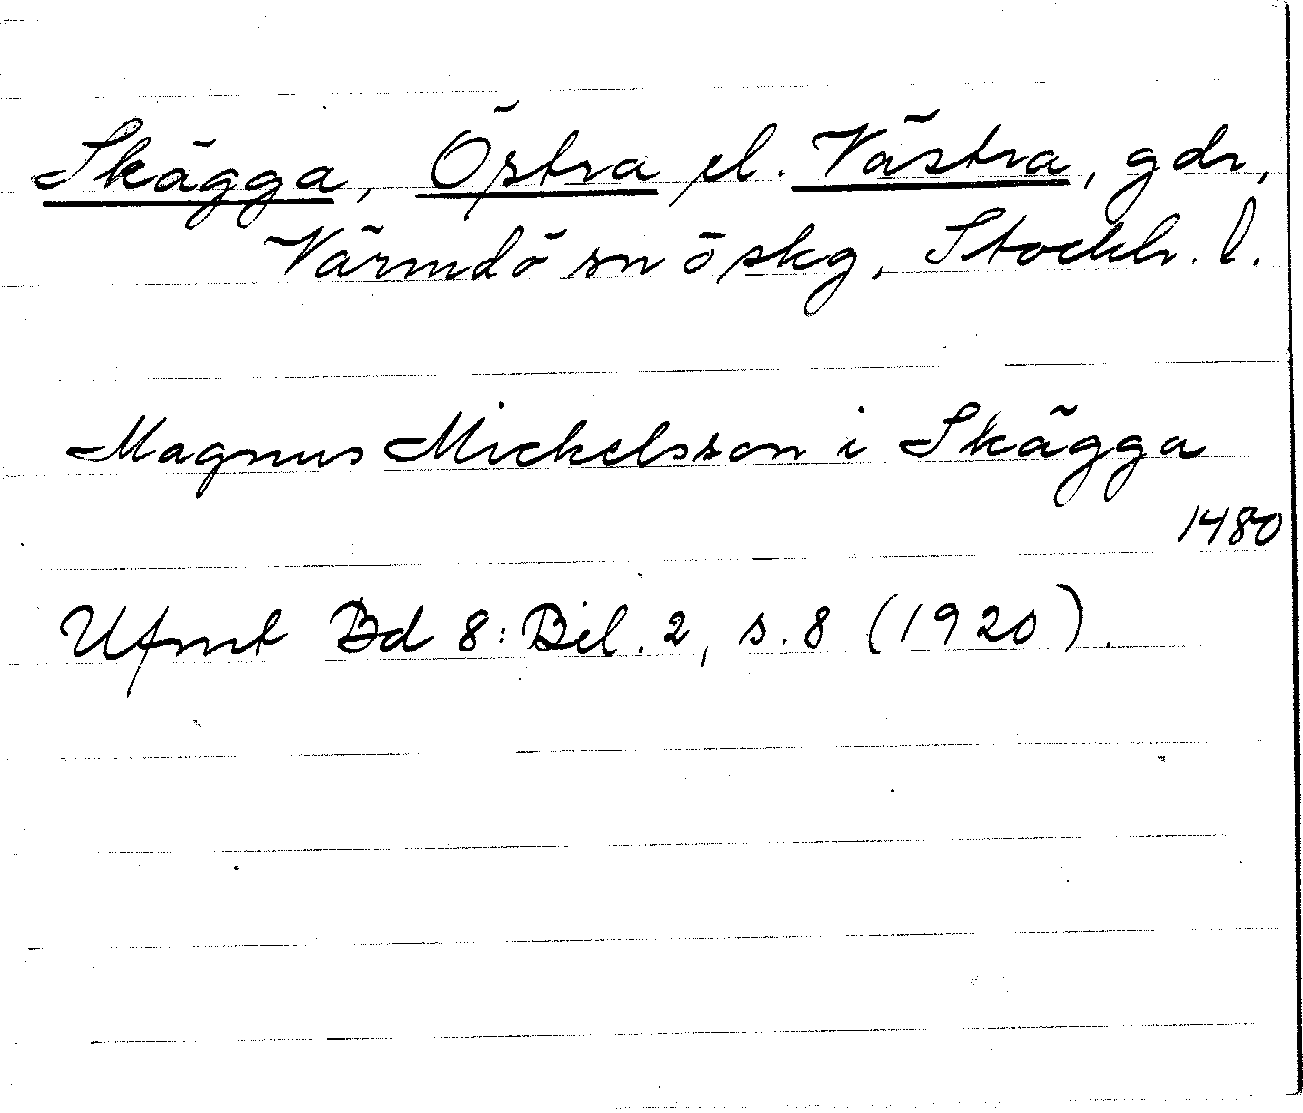 Skägga, Östra el. Västra, gdr,
Värmdö sn ö skg, Stockh. l.
Magnus Mickelsson i Skägga
1480
Ufmt Bd 8: Bil. 2, s. 8 (1920).